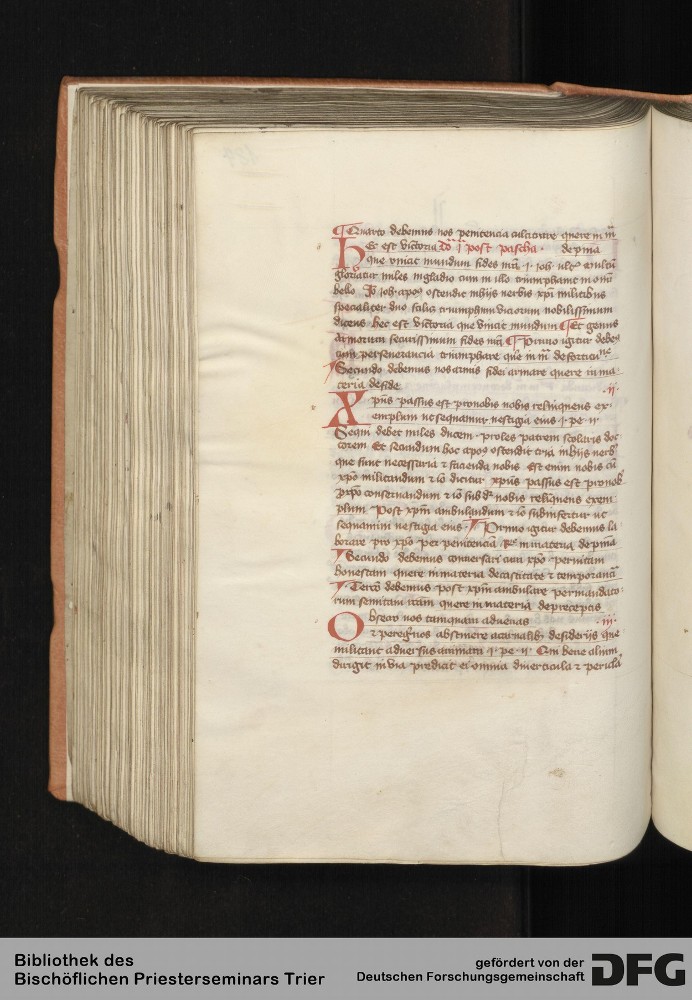 Quarto debemus nos penitencia culcitrare quere in mͣ
Hec est victoria Doͣ iͣ post pascha · de pniͣa
que vincit mundum fides nrͣa ·i· ioh· ultͦ multū
gloriatur miles in gladio cum in illo triumphavit in omi
bello Iō ioh· apoꝰ ostendit in hijs verbis xpi militibus
specialiter duo scilicꝫ triumphum victorum nobilissimum
dicens hec est victoria que vincit mundum Et genus
armorum securissimum fides nrͣa Primo igitur debeꝰ
cum perseverancia triumphare que in mͣ de fortitudīe
Secundo debemus nos armis fidei armare quere in ma
teria de fide ·ii·
Xpus passus est pro nobis nobis relinquens ex
emplum ut sequamur vestigia eius ·i· pe· ii·
Sequi debet miles ducem proles patrem scolaris doc
torem Et secundum hoc apoꝰ ostendit tria in hijs verbꝭ
que sunt necessaria ⁊ facienda nobis Est enim nobis cū
xpo militandum ⁊ iō dicitur xpus passus est pro nobꝭ
xpo conservandum ⁊ iō subdꝛ nobis relinquens exem
plum Post xpm ambulandum ⁊ iō subinfertur ut
sequamini vestigia eius · Primo igitur debemus la
borare pro xpo per penitenciā Rͤ in materia de pniͣa
Secundo debemus conversari cum xpo per vitam
honestam quere in materia de castitate ⁊ temporanciͣ
Tercō debemus post xpm ambulare per mandato
rum semitam itam quere in materia de preceptis
Obsecro vos tamquam advenas ·iii·
⁊ peregͥnos abstinere a carnalibꝫ desiderijs que
militant adversus animam ·i· pe· ii· Qui bene alium
dirigit in via predicit ei omnia diverticula ⁊ periclaͣ
Bibliothek des
Bischöflichen Priesterseminars Trier
gefördert von der
Deutschen Forschungsgemeinschaft
DFG